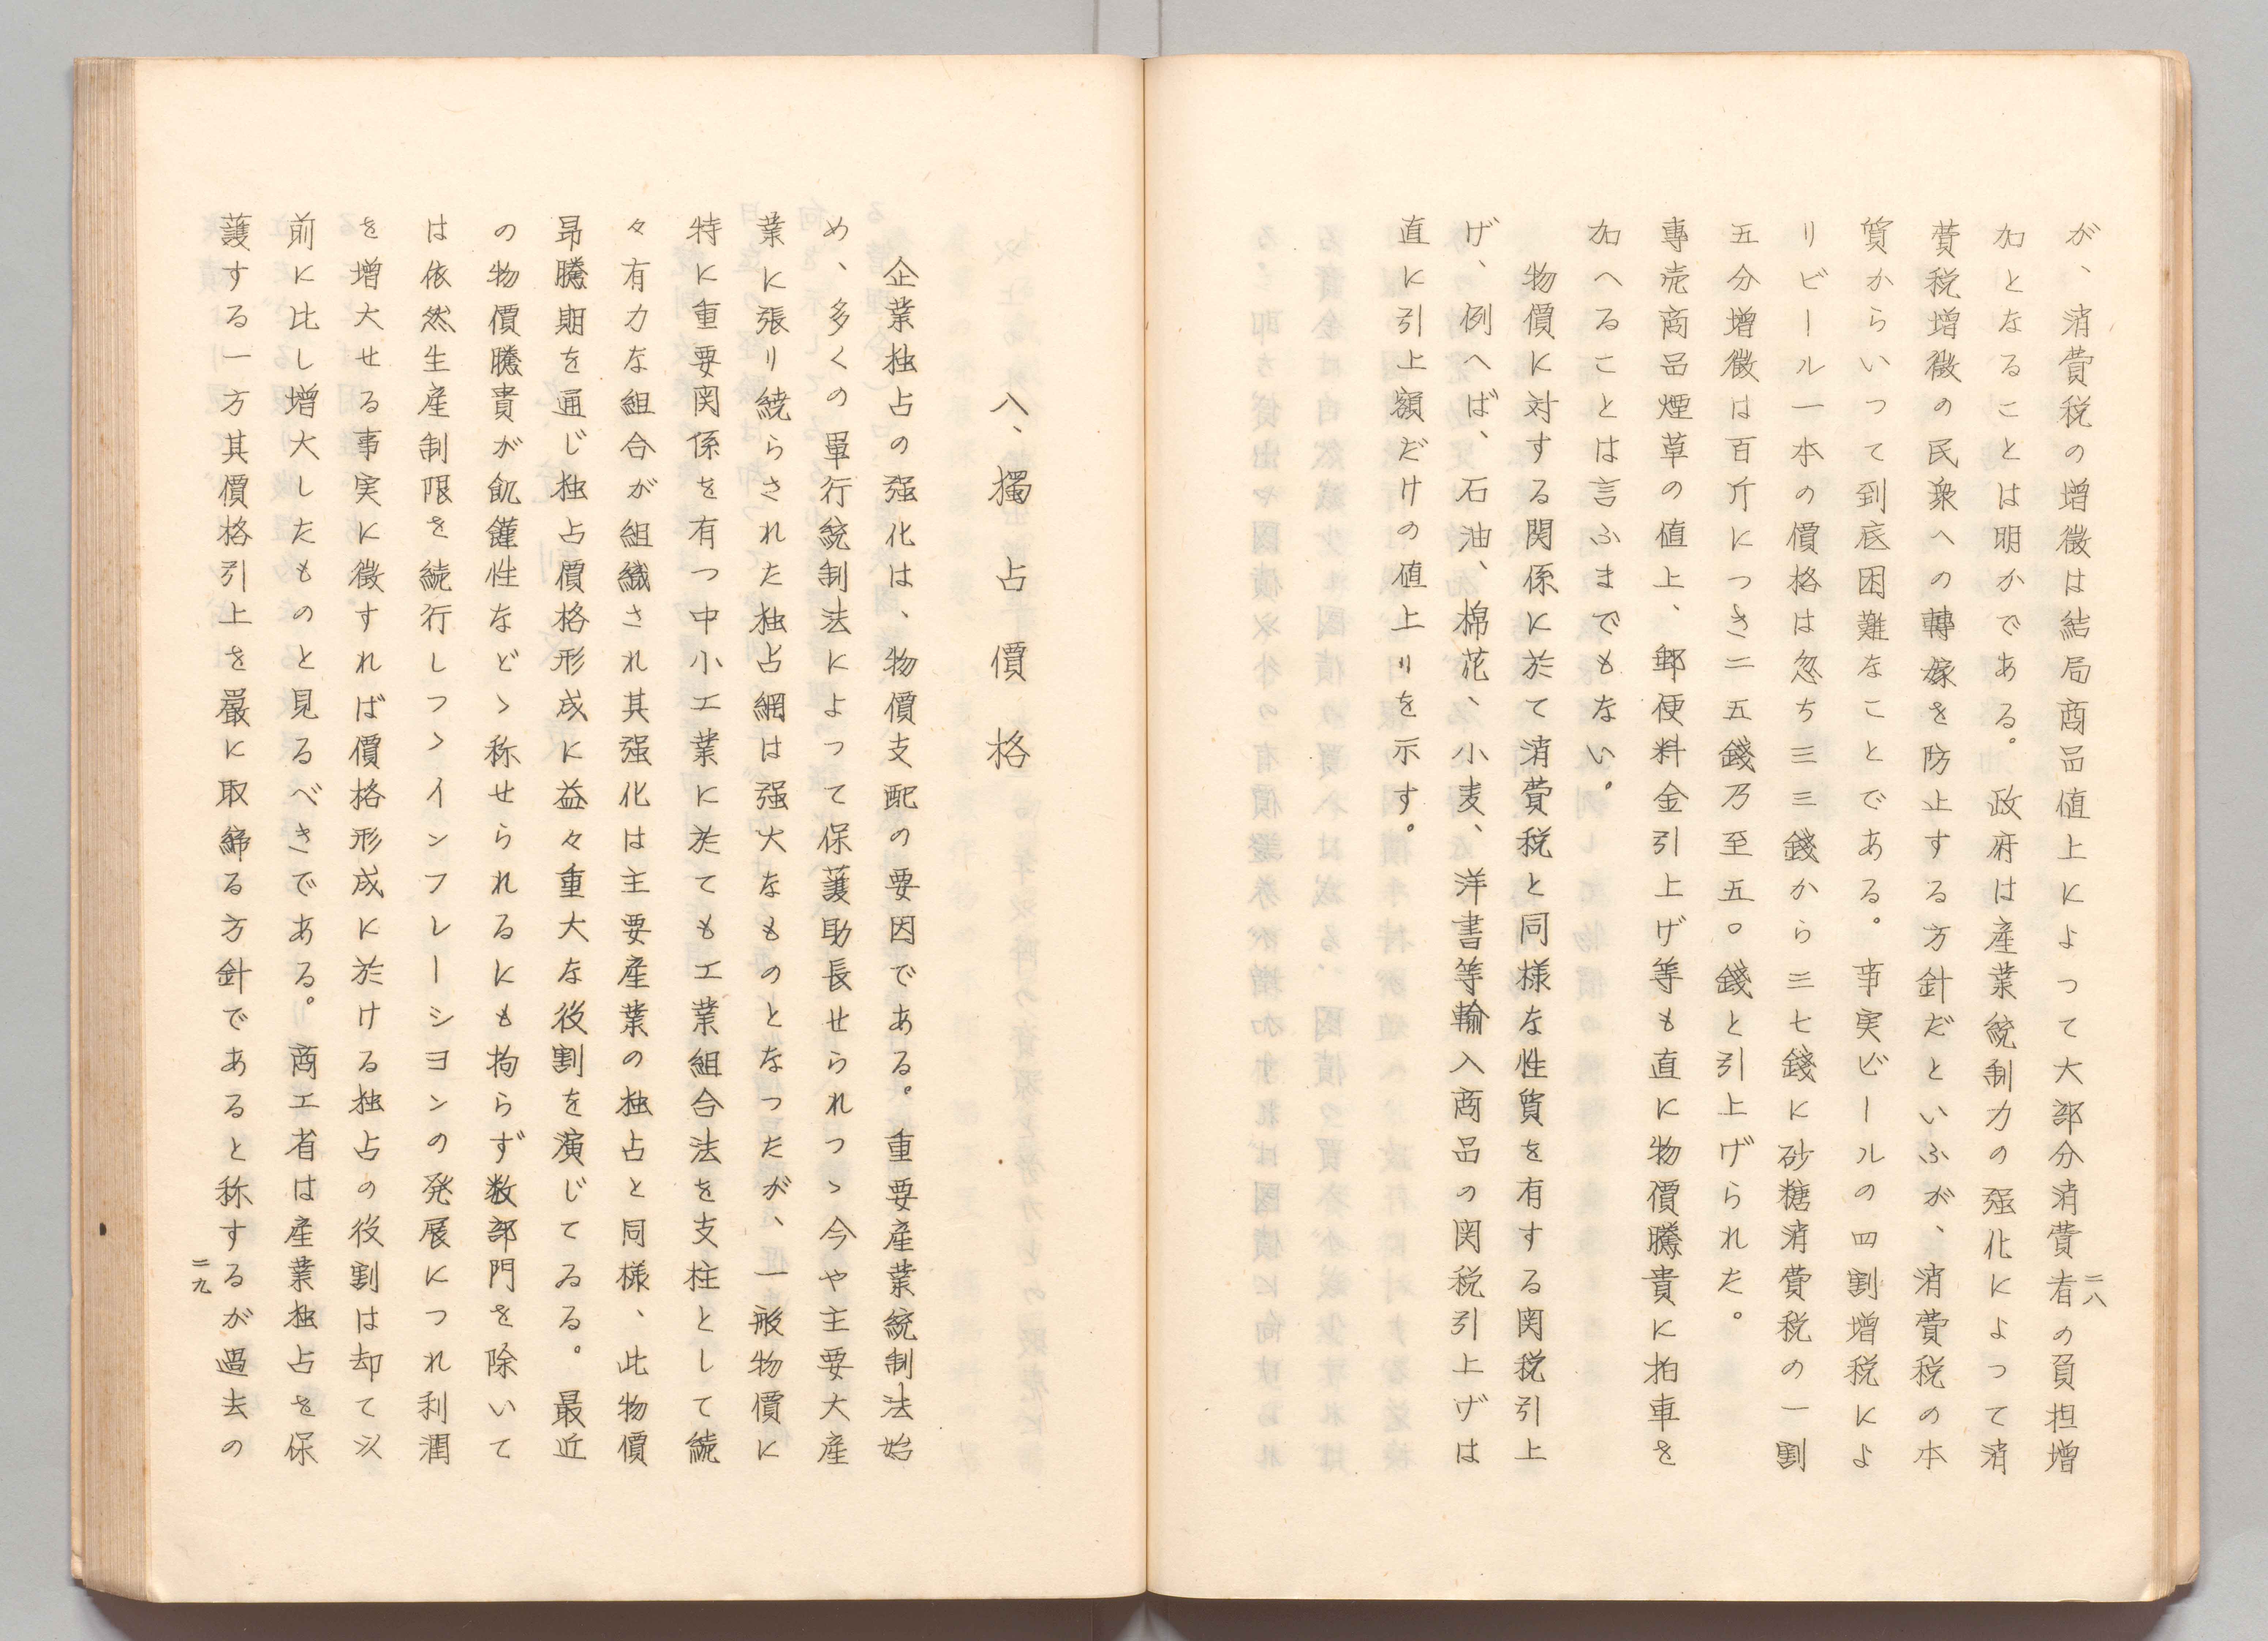 が、消費税の増徴は結局商品値上によって大部分消費者の負担増
加となることは明かである。政府は産業統制力の强化によって消
費税増徴の民衆への轉嫁を防止する方針だといふが、消費税の本
質からいって到底困難なことである。事実ビールの四割増税によ
りビール一本の價格は忽ち三三錢から三七錢に砂糖消費税の一割
五分増徴は百斤につき二五錢乃至五〇錢と引上げられた。
專売商品煙草の値上、郵便料金引上げ等も直に物價騰貴に拍車を
加へることは言ふまでもない。
物價に対する関係に於て消費税と同様な性質を有する関税引上
げ、例へば、石油、棉花、小麦、洋書等輸入商品の関税引上げは
直に引上額だけの値上りを示す。
二八
八、獨占價格
企業独占の强化は、物價支配の要因である。重要産業統制法始
め、多くの單行統制法によって保護助長せられつゝ今や主要大産
業に張り繞らされた独占網は强大なものとなったが、一般物價に
特に重要関係を有つ中小工業に於ても工業組合法を支柱として続
々有力な組合が組織され其强化は主要産業の独占と同様、此物價
昂騰期を通じ独占價格形成に益々重大な役割を演じてゐる。最近
の物價騰貴が飢饉性などゝ称せられるにも拘らず数部門を除いて
は依然生産制限を続行しつゝインフレーションの発展につれ利潤
を増大せる事実に徴すれば價格形成に於ける独占の役割は却て以
前に比し増大したものと見るべきである。商工省は産業独占を保
護する一方其價格引上を嚴に取締る方針であると称するが過去の
二九